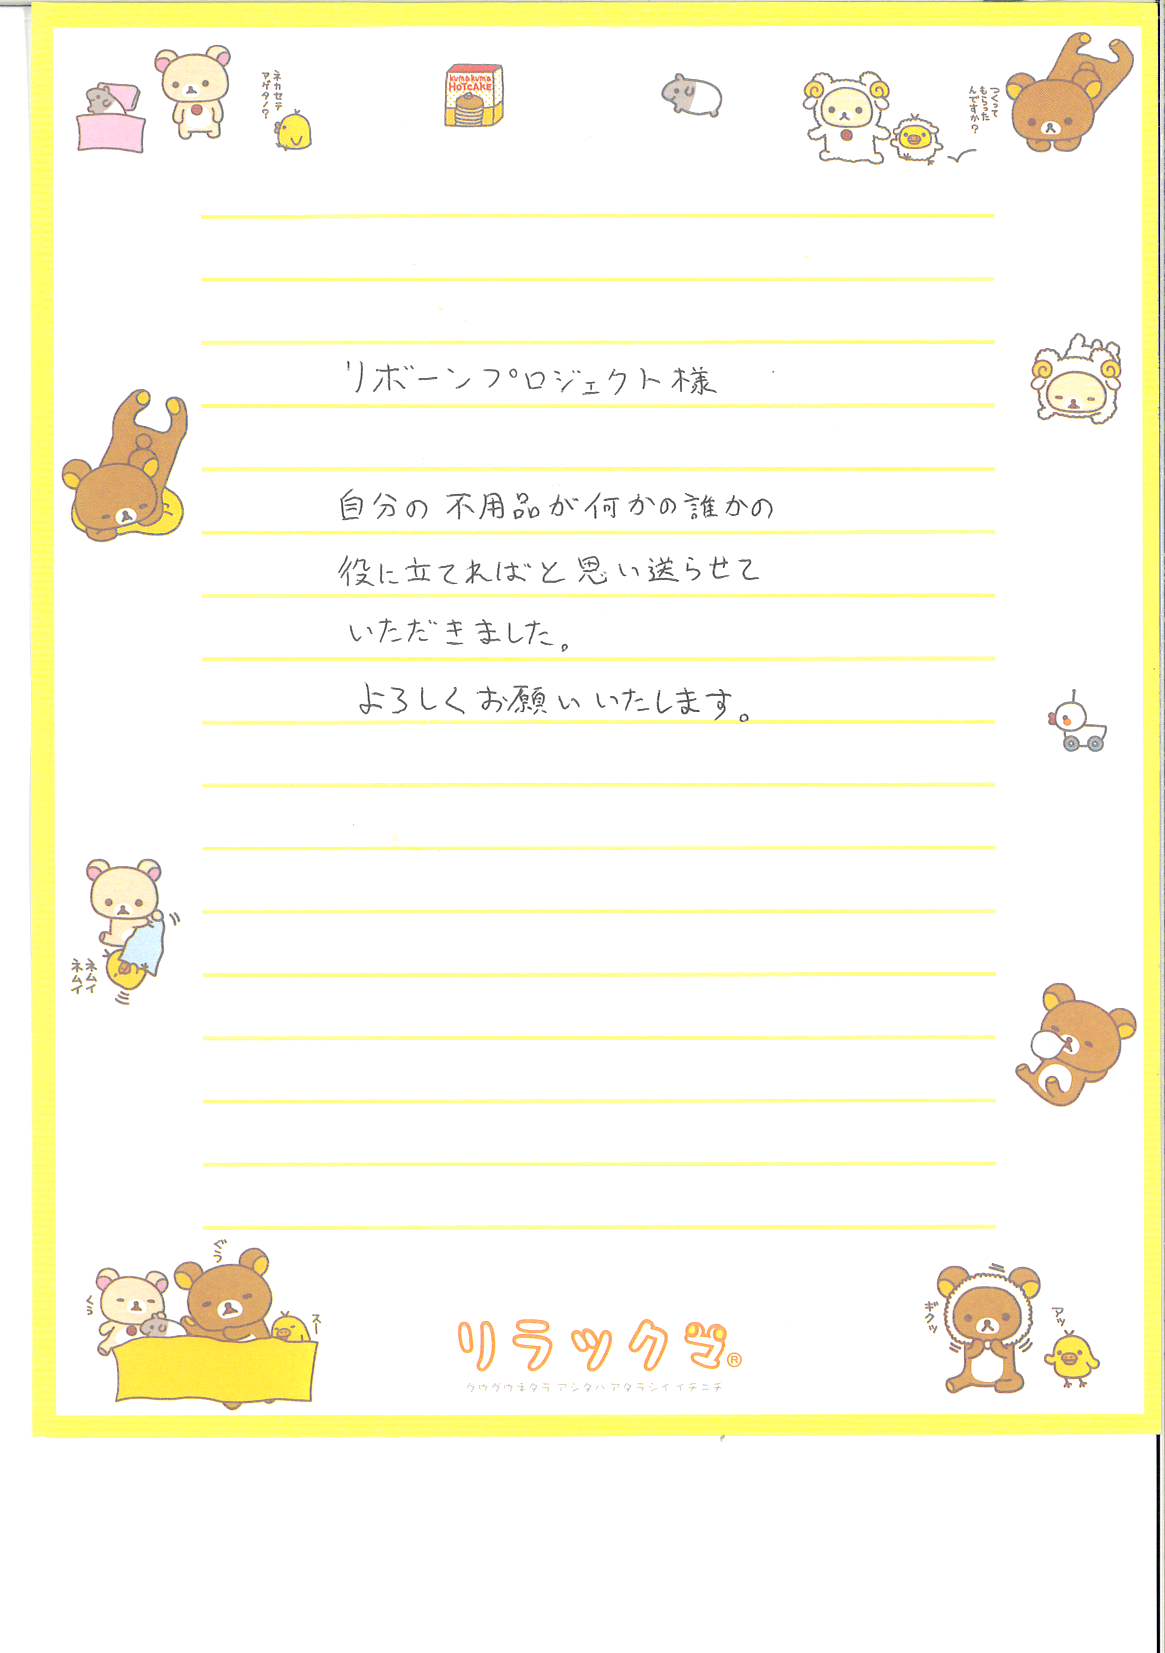 ネカセテ
アゲタノ?
kumakuma
HOTCAKE
つくって
もらった
んですか?
リボーンプロジェクト様
自分の不用品が何かの誰かの
役に立てればと思い送らせて
いただきました。
よろしくお願いいたします。
ネムイ
ネムイ
ぐぅ
くぅ
スー
ギクッ
アッ
リラックマ®
グウグウネタラ アシタハ アタラシイ イチニチ